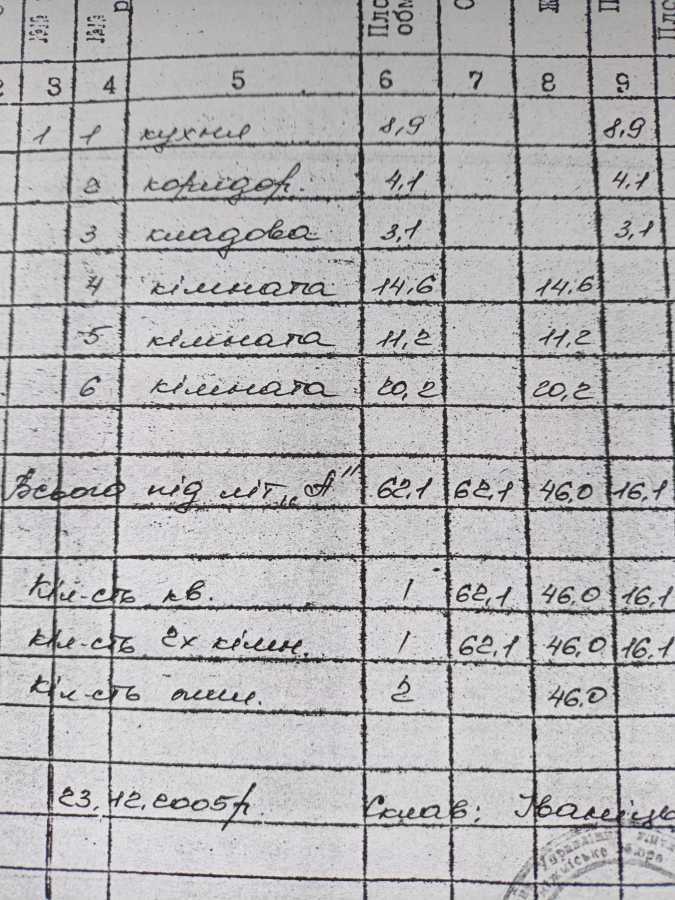 Пло
обм
2 3 4 5 6 7 8 9
1 1 кухня 8,9 8,9
2 коридор. 4,1 4,1
3 кладова 3,1 3,1
4 кімната 14,6 14,6
5 кімната 11,2 11,2
6 кімната 20,2 20,2
Всього під літ „А" 62,1 62,1 46,0 16,1
Кіл-сть кв. 1 62,1 46,0 16,1
кіл-сть 2х кімн. 1 62,1 46,0 16,1
кіл-сть 2 46,0
23.12.2005р. Склав: